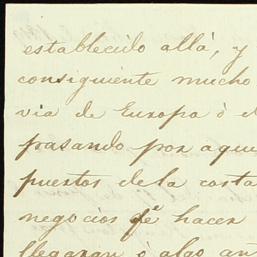 establecido allá, y
consiguiente mucho
via de Europa ò d
pasando por aque
puertos dela costa
negocios qe hacer
llegaran ó algo añ